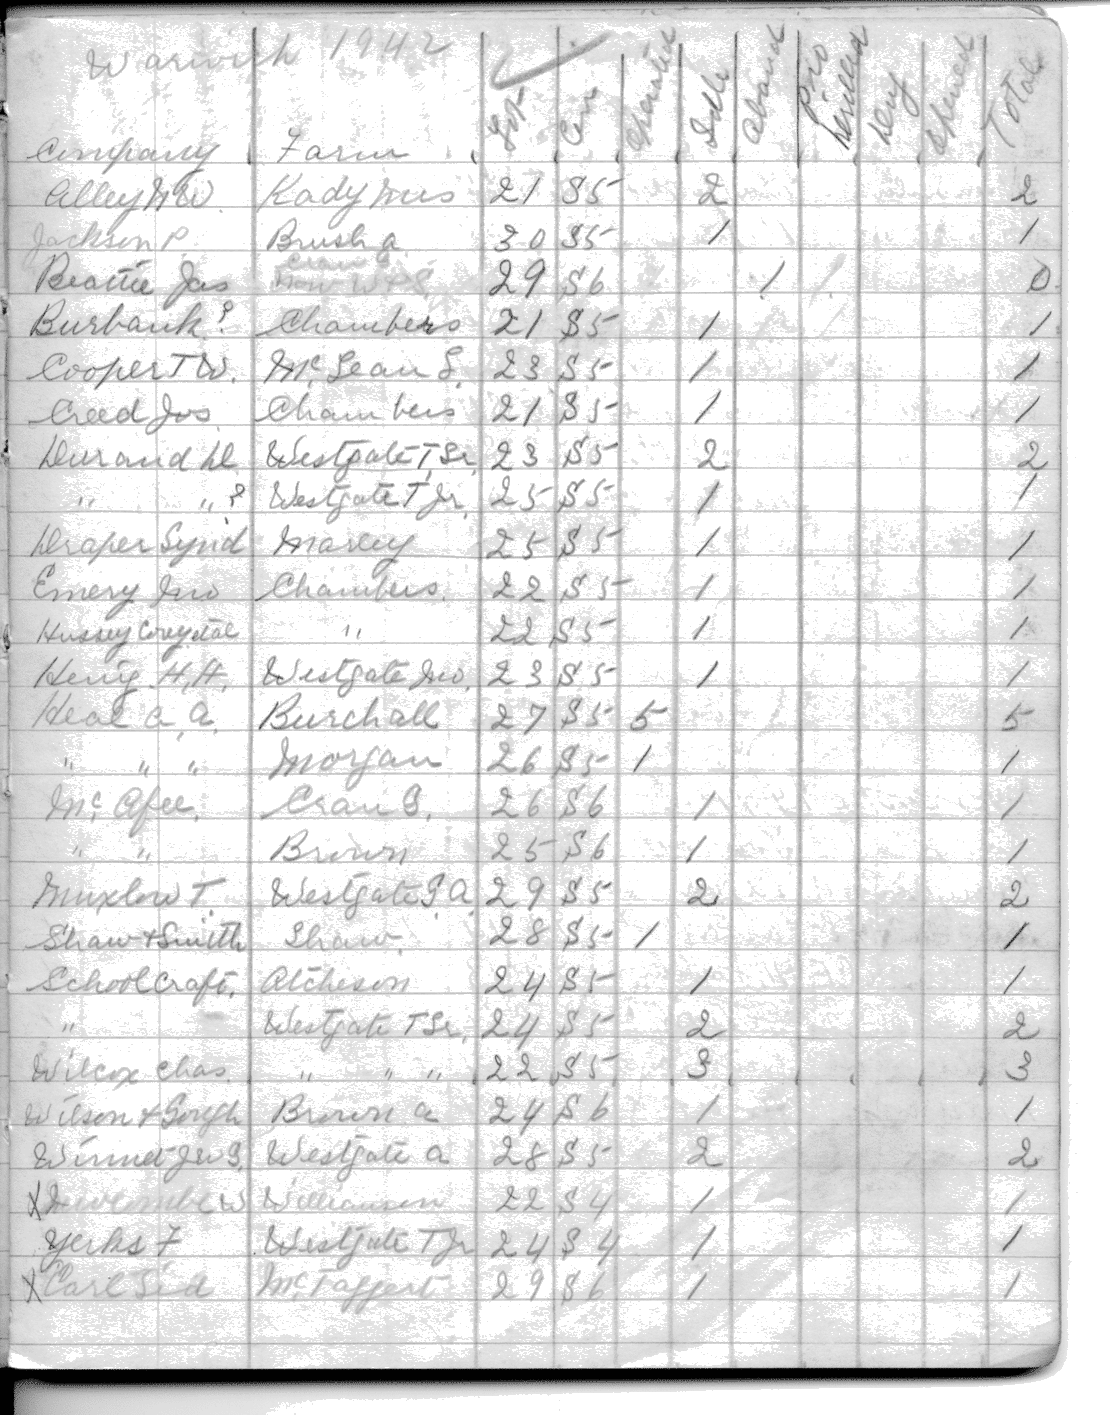 Warwick 1942
Company Farm Lot Con Operated Idle Aband Pro Drilled Dry Opened Total
Alley N W. Kady Mrs 21 S5 2 2
Jackson P. Brush A. 30 S5 1 1
Beattie Jas Cran G. 29 S6 1 0
Burbank ? Chambers 21 S5 1 1
Cooper T W. Mc Lean S. 23 S5 1 1
Creed Jos. Chambers 21 S5 1 1
Durand D. Westgate T, Sr. 23 S5 2 2
" " ? Westgate T Jr. 25 S5 1 1
Draper Synd Maxey 25 S5 1 1
Emery Jno Chambers. 22 S5 1 1
Hussey " 22 S5 1 1
Henig H.H. Westgate Jno. 23 S5 1 1
Heal a. a. Burchall 27 S5 5 5
" " " Morgan 26 S5 1 1
Mc Afee. Cran G. 26 S6 1 1
" " Brown 25 S6 1 1
Muxlow T. Westgate G A. 29 S5 2 2
Shaw + Smith Shaw. 28 S5 1 1
School Craft. Atcheson 24 S5 1 1
" Westgate T Sr. 24 S5 2 2
Wilcox Chas. " " " 22 S5 3 3
Wilson + Gough Brown a 24 S6 1 1
Winnet Jw G. Westgate a 28 S5 2 2
X W Williamson 22 S4 1 1
Yerks F Westgate T Jr 24 S4 1 1
X Carl Sid Mc Taggert 29 S6 1 1